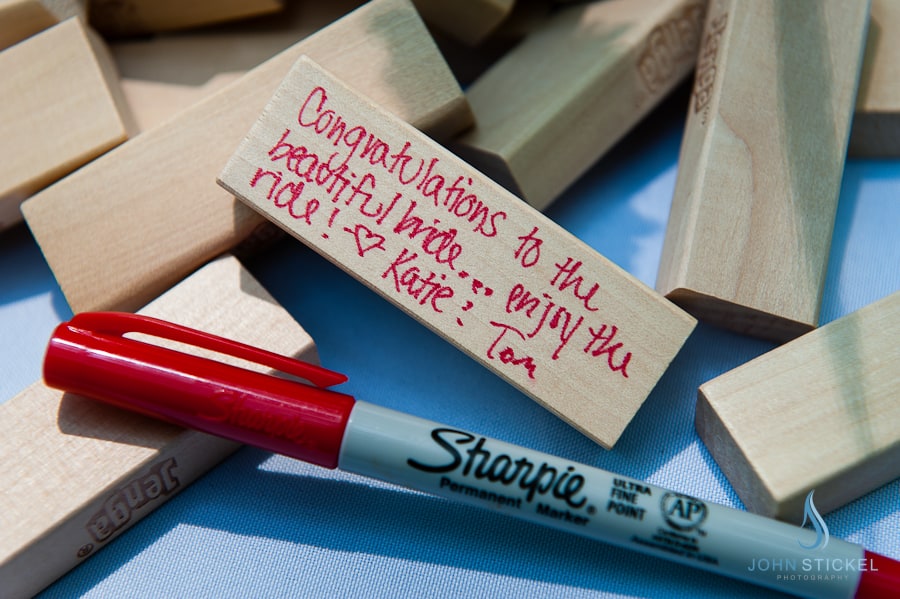 Jenga
Jenga
Congratulations to the
beautiful bride... enjoy the
ride! ♡ Katie & Tom
Jenga
Sharpie®
Permanent Marker
ULTRA
FINE
POINT
AP
JOHN STICKEL
PHOTOGRAPHY